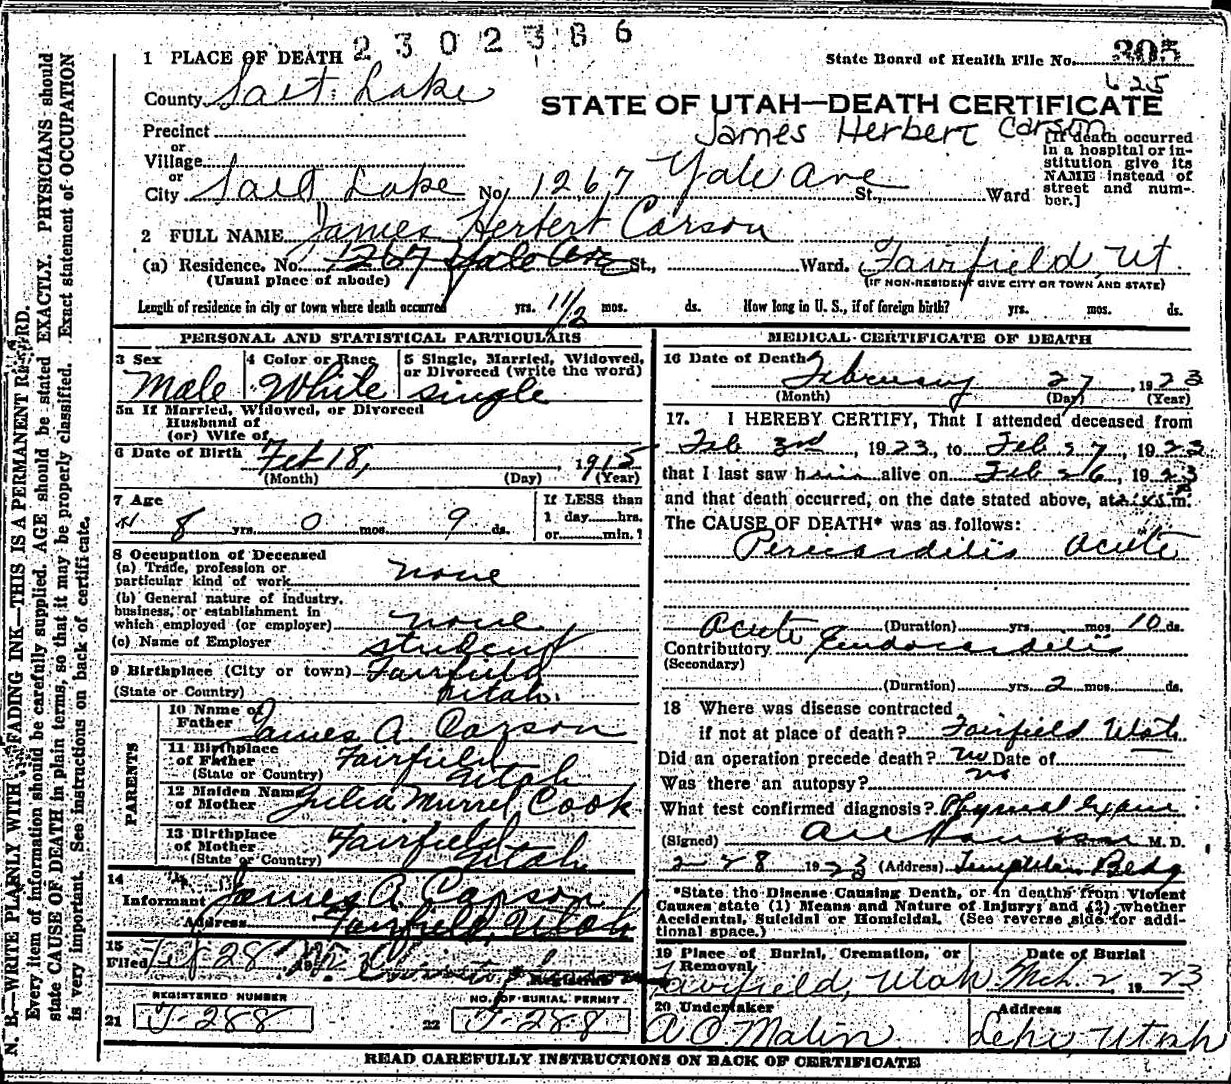 2302366
1 PLACE OF DEATH
State Board of Health File No. 305
625
County Salt Lake
STATE OF UTAH—DEATH CERTIFICATE
James Herbert Carson
Precinct
or
Village
or
City Salt Lake No. 1267 Yale Ave St., Ward
[If death occurred
in a hospital or in-
stitution give its
NAME instead of
street and num-
ber.]
2 FULL NAME James Herbert Carson
(a) Residence. No. 1267 Yale Ave St., Ward. Fairfield, Ut.
(Usual place of abode) (IF NON-RESIDENT GIVE CITY OR TOWN AND STATE)
Length of residence in city or town where death occurred yrs. 1 1/2 mos. ds. How long in U. S., if of foreign birth? yrs. mos. ds.
PERSONAL AND STATISTICAL PARTICULARS
3 Sex
Male
4 Color or Race
White
5 Single, Married, Widowed,
or Divorced (write the word)
single
5a If Married, Widowed, or Divorced
Husband of
(or) Wife of
6 Date of Birth Feb 18, 1915
(Month) (Day) (Year)
7 Age
8 yrs. 0 mos. 9 ds.
If LESS than
1 day hrs.
or min.?
8 Occupation of Deceased
(a) Trade, profession or
particular kind of work none
(b) General nature of industry,
business, or establishment in
which employed (or employer) none
(c) Name of Employer student
9 Birthplace (City or town) Fairfield
(State or Country) Utah.
PARENTS
10 Name of
Father James A. Carson
11 Birthplace
of Father Fairfield
(State or Country) Utah
12 Maiden Name
of Mother Julia Murrel Cook
13 Birthplace
of Mother Fairfield
(State or Country) Utah
14
Informant James A. Carson
Address Fairfield, Utah
15
Filed Feb 28 1923
Registrar
REGISTERED NUMBER
21 J-288
NO. OF BURIAL PERMIT
22 J-288
MEDICAL CERTIFICATE OF DEATH
16 Date of Death February 27, 1923
(Month) (Day) (Year)
17. I HEREBY CERTIFY, That I attended deceased from
Feb 3rd, 1923, to Feb 27, 1923
that I last saw him alive on Feb 26, 1923
and that death occurred, on the date stated above, at m.
The CAUSE OF DEATH* was as follows:
Pericarditis acute
(Duration) yrs. mos. 10 ds.
Contributory Acute Endocarditis
(Secondary)
(Duration) yrs. 2 mos. ds.
18 Where was disease contracted
if not at place of death? Fairfield Utah
Did an operation precede death? no Date of
Was there an autopsy? no
What test confirmed diagnosis? Physical Exam
(Signed) M. D.
2-28 1923 (Address) Templeton Bldg
*State the Disease Causing Death, or in deaths from Violent
Causes state (1) Means and Nature of Injury; and (2) whether
Accidental, Suicidal or Homicidal. (See reverse side for addi-
tional space.)
19 Place of Burial, Cremation, or
Removal
Fairfield, Utah
Date of Burial
Mch. 2 1923
20 Undertaker
A O Malin
Address
Lehi, Utah
READ CAREFULLY INSTRUCTIONS ON BACK OF CERTIFICATE
N. B.—WRITE PLAINLY WITH UNFADING INK—THIS IS A PERMANENT RECORD.
Every item of information should be carefully supplied. AGE should be stated EXACTLY. PHYSICIANS should
state CAUSE OF DEATH in plain terms, so that it may be properly classified. Exact statement of OCCUPATION
is very important. See instructions on back of certificate.